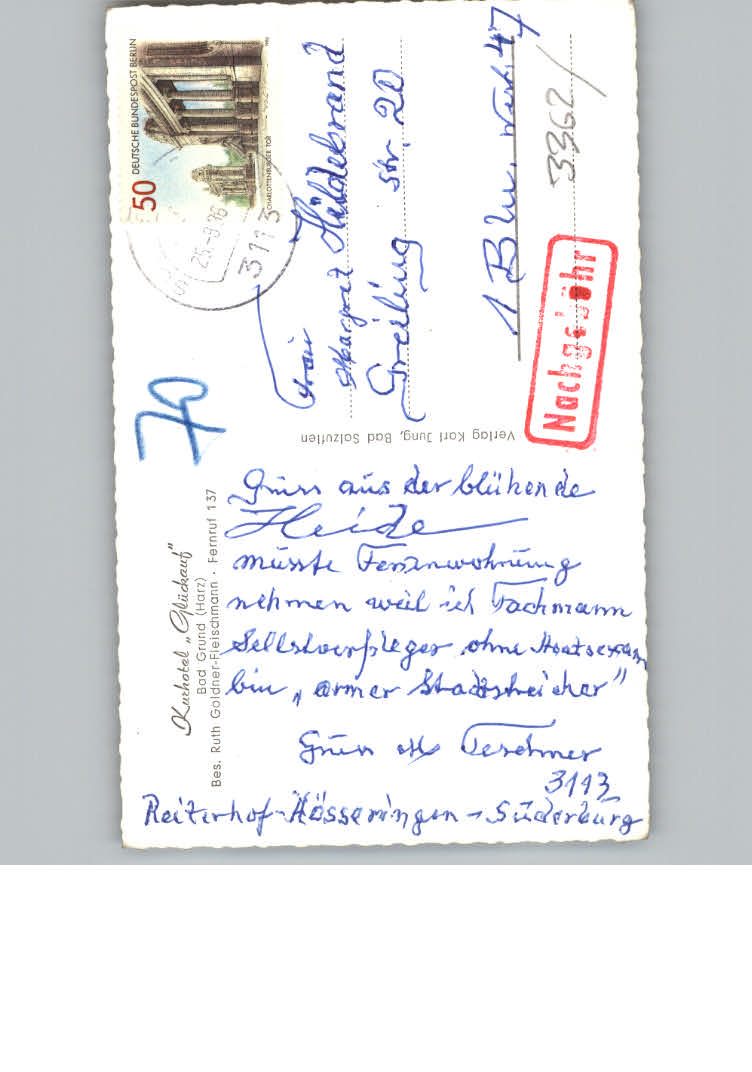 50
DEUTSCHE BUNDESPOST BERLIN
CHARLOTTENBURGER TOR
25.-8.
3113
Frau
Margret Hildebrand
Greiling str. 20
1 Bln. 47
3362/
Nachgebühr
70
Verlag Karl Jung, Bad Salzuflen
Kurhotel „Glückauf”
Bad Grund (Harz)
Bes. Ruth Goldner-Fleischmann · Fernruf 137
Gruss aus der blühende
Heide
müsste Ferienwohnung
nehmen weil ich Fachmann
Selbstverpfleger ohne
bin „armer Stadtstreicher”
Gruss
3113
Reiterhof-Hösseringen - Süderburg